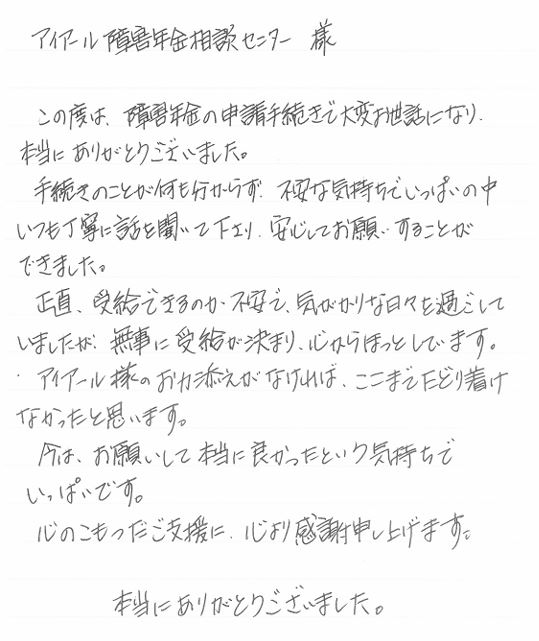 アイアール障害年金相談センター 様
この度は、障害年金の申請手続きで大変お世話になり、
本当にありがとうございました。
手続きのことが何も分からず、不安な気持ちでいっぱいの中
いつも丁寧に話を聞いて下さり、安心してお願いすることが
できました。
正直、受給できるのか不安で、気がかりな日々を過ごして
いましたが、無事に受給が決まり、心からほっとしています。
アイアール様のお力添えがなければ、ここまでたどり着け
なかったと思います。
今は、お願いして本当に良かったという気持ちで
いっぱいです。
心のこもったご支援に、心より感謝申し上げます。
本当にありがとうございました。